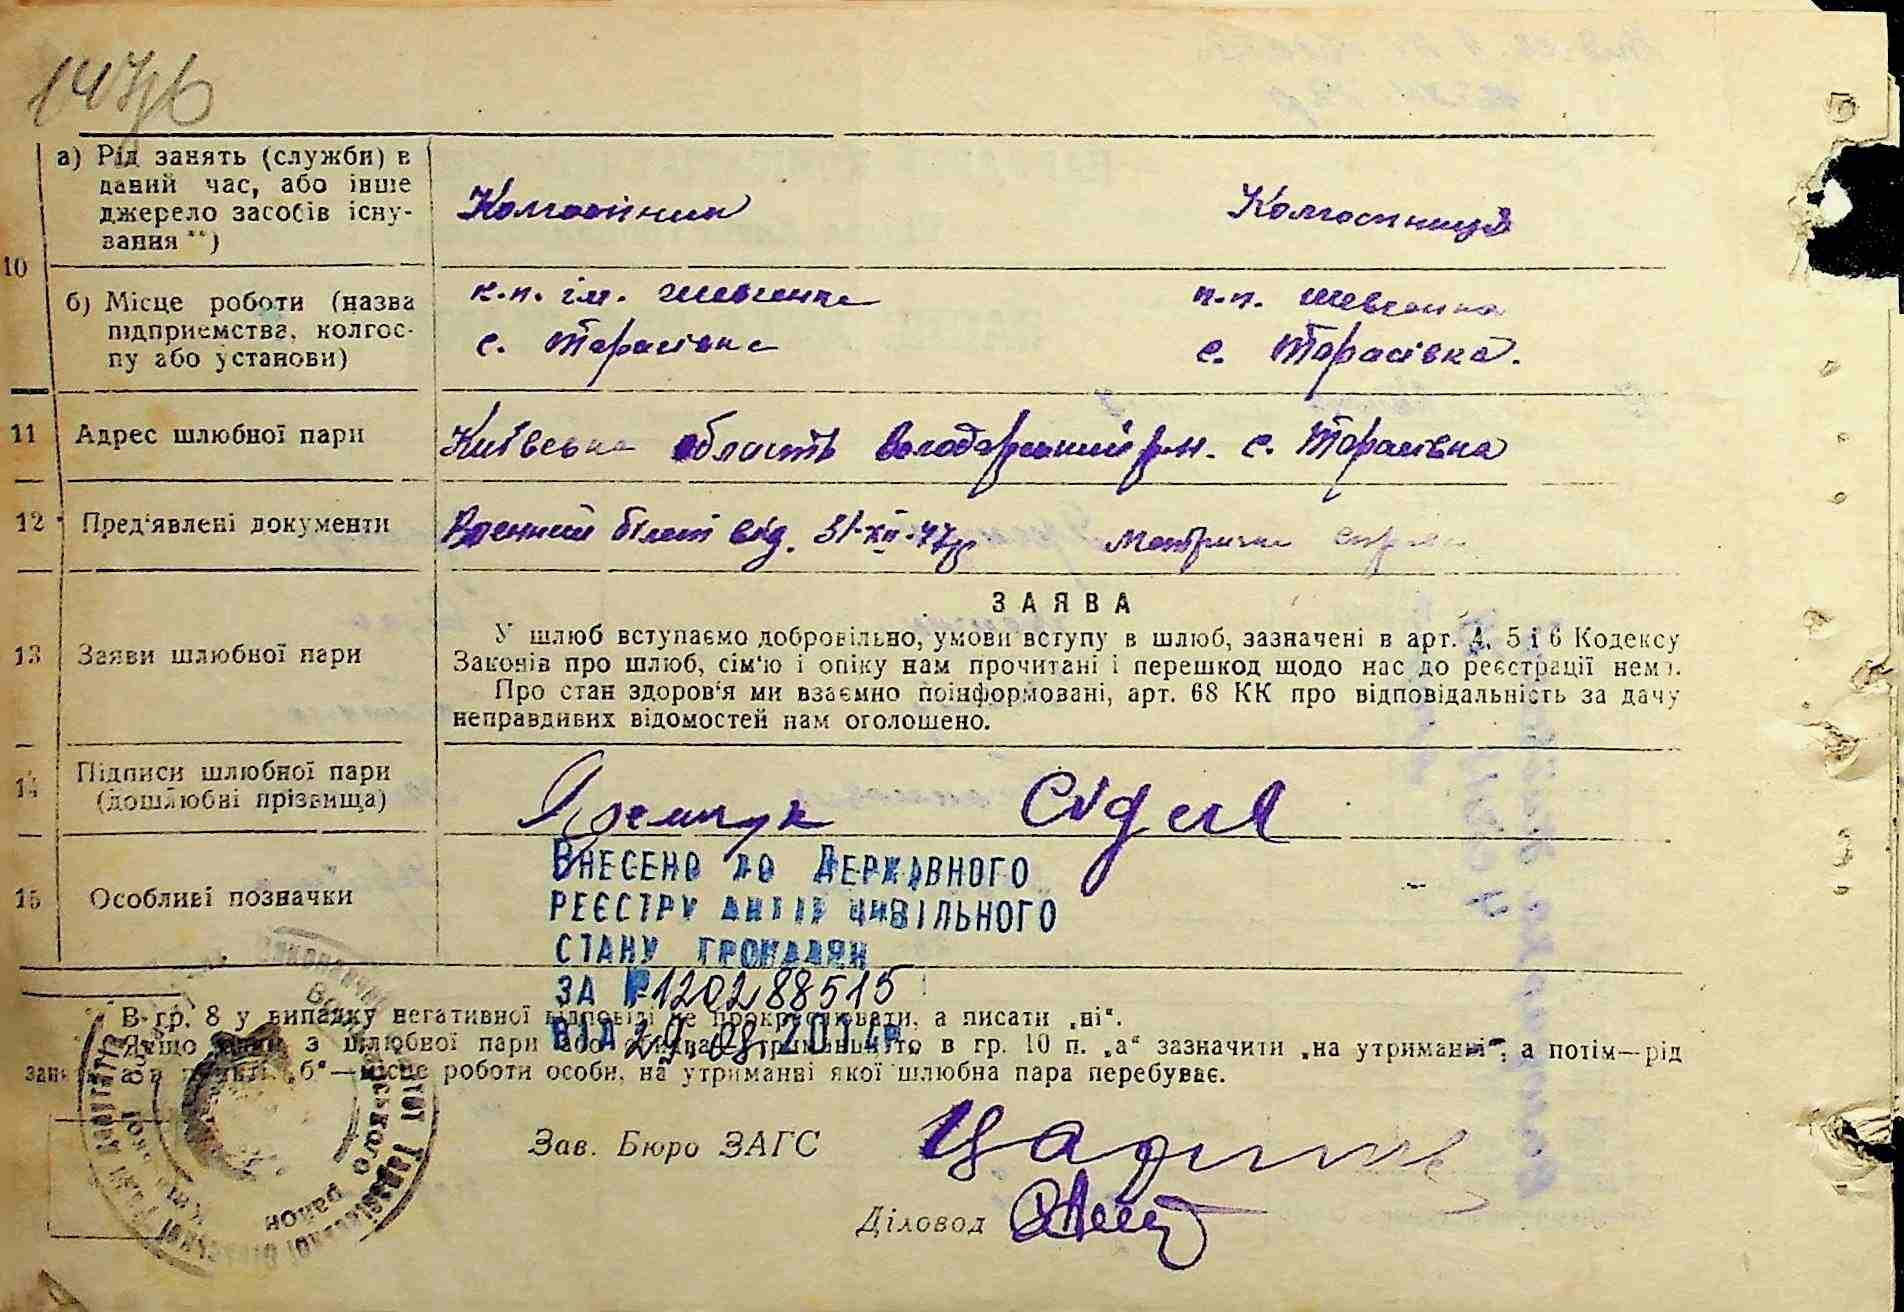 147 зв
а) Рід занять (служби) в
даний час, або інше
джерело засобів існу-
вання **)
Колгоспник Колгоспниця
10
б) Місце роботи (назва
підприємства, колгос-
пу або установи)
к.п. ім. Шевченка к.п. Шевченка
с. Тарасівка с. Тарасівка.
11 Адрес шлюбної пари Київська область Володарський р-н. с. Тарасівка
12 Пред'явлені документи Военний білет від. 31-XII-47р Метричне
ЗАЯВА
13 Заяви шлюбної пари
У шлюб вступаємо добровільно, умови вступу в шлюб, зазначені в арт. 4, 5 і 6 Кодексу
Законів про шлюб, сім'ю і опіку нам прочитані і перешкод щодо нас до реєстрації нема.
Про стан здоров'я ми взаємно поінформовані, арт. 68 КК про відповідальність за дачу
неправдивих відомостей нам оголошено.
14 Підписи шлюбної пари
(дошлюбні прізвища)
Яремчук
15 Особливі позначки
ВНЕСЕНО ДО ДЕРЖАВНОГО
РЕЄСТРУ АКТІВ ЦИВІЛЬНОГО
СТАНУ ГРОМАДЯН
ЗА №120288515
ВІД 29.08.2014р.
* В гр. 8 у випадку негативної відповіді не прокреслювати, а писати „ні".
Якщо з шлюбної пари або в гр. 10 п. „а" зазначити „на утриманні", а потім—рід
„б"—місце роботи особи, на утриманні якої шлюбна пара перебуває.
Зав. Бюро ЗАГС
Діловод